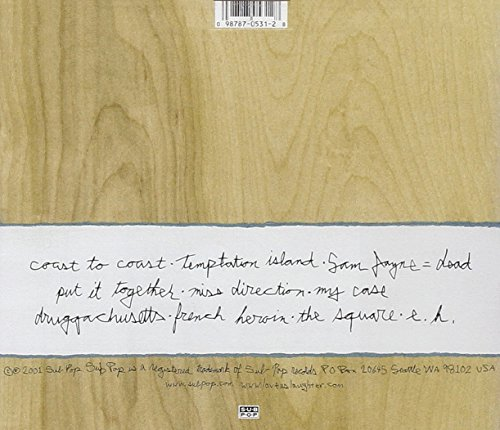 0 98787-0531-2 8
coast to coast · temptation island · Sam Jayne = dead
put it together · miss direction · my case
druggachusetts · french heroin · the square · e.h.
©℗ 2001 Sub Pop. Sub Pop is a registered trademark of Sub-Pop records PO Box 20645 Seattle WA 98102 USA
www.subpop.com www.loveasslaughter.com
SUB
POP